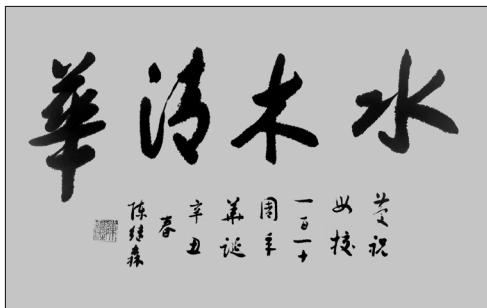 水木清華
慶祝
母校
一百一十
周年
華誕
辛丑
春
陈继森